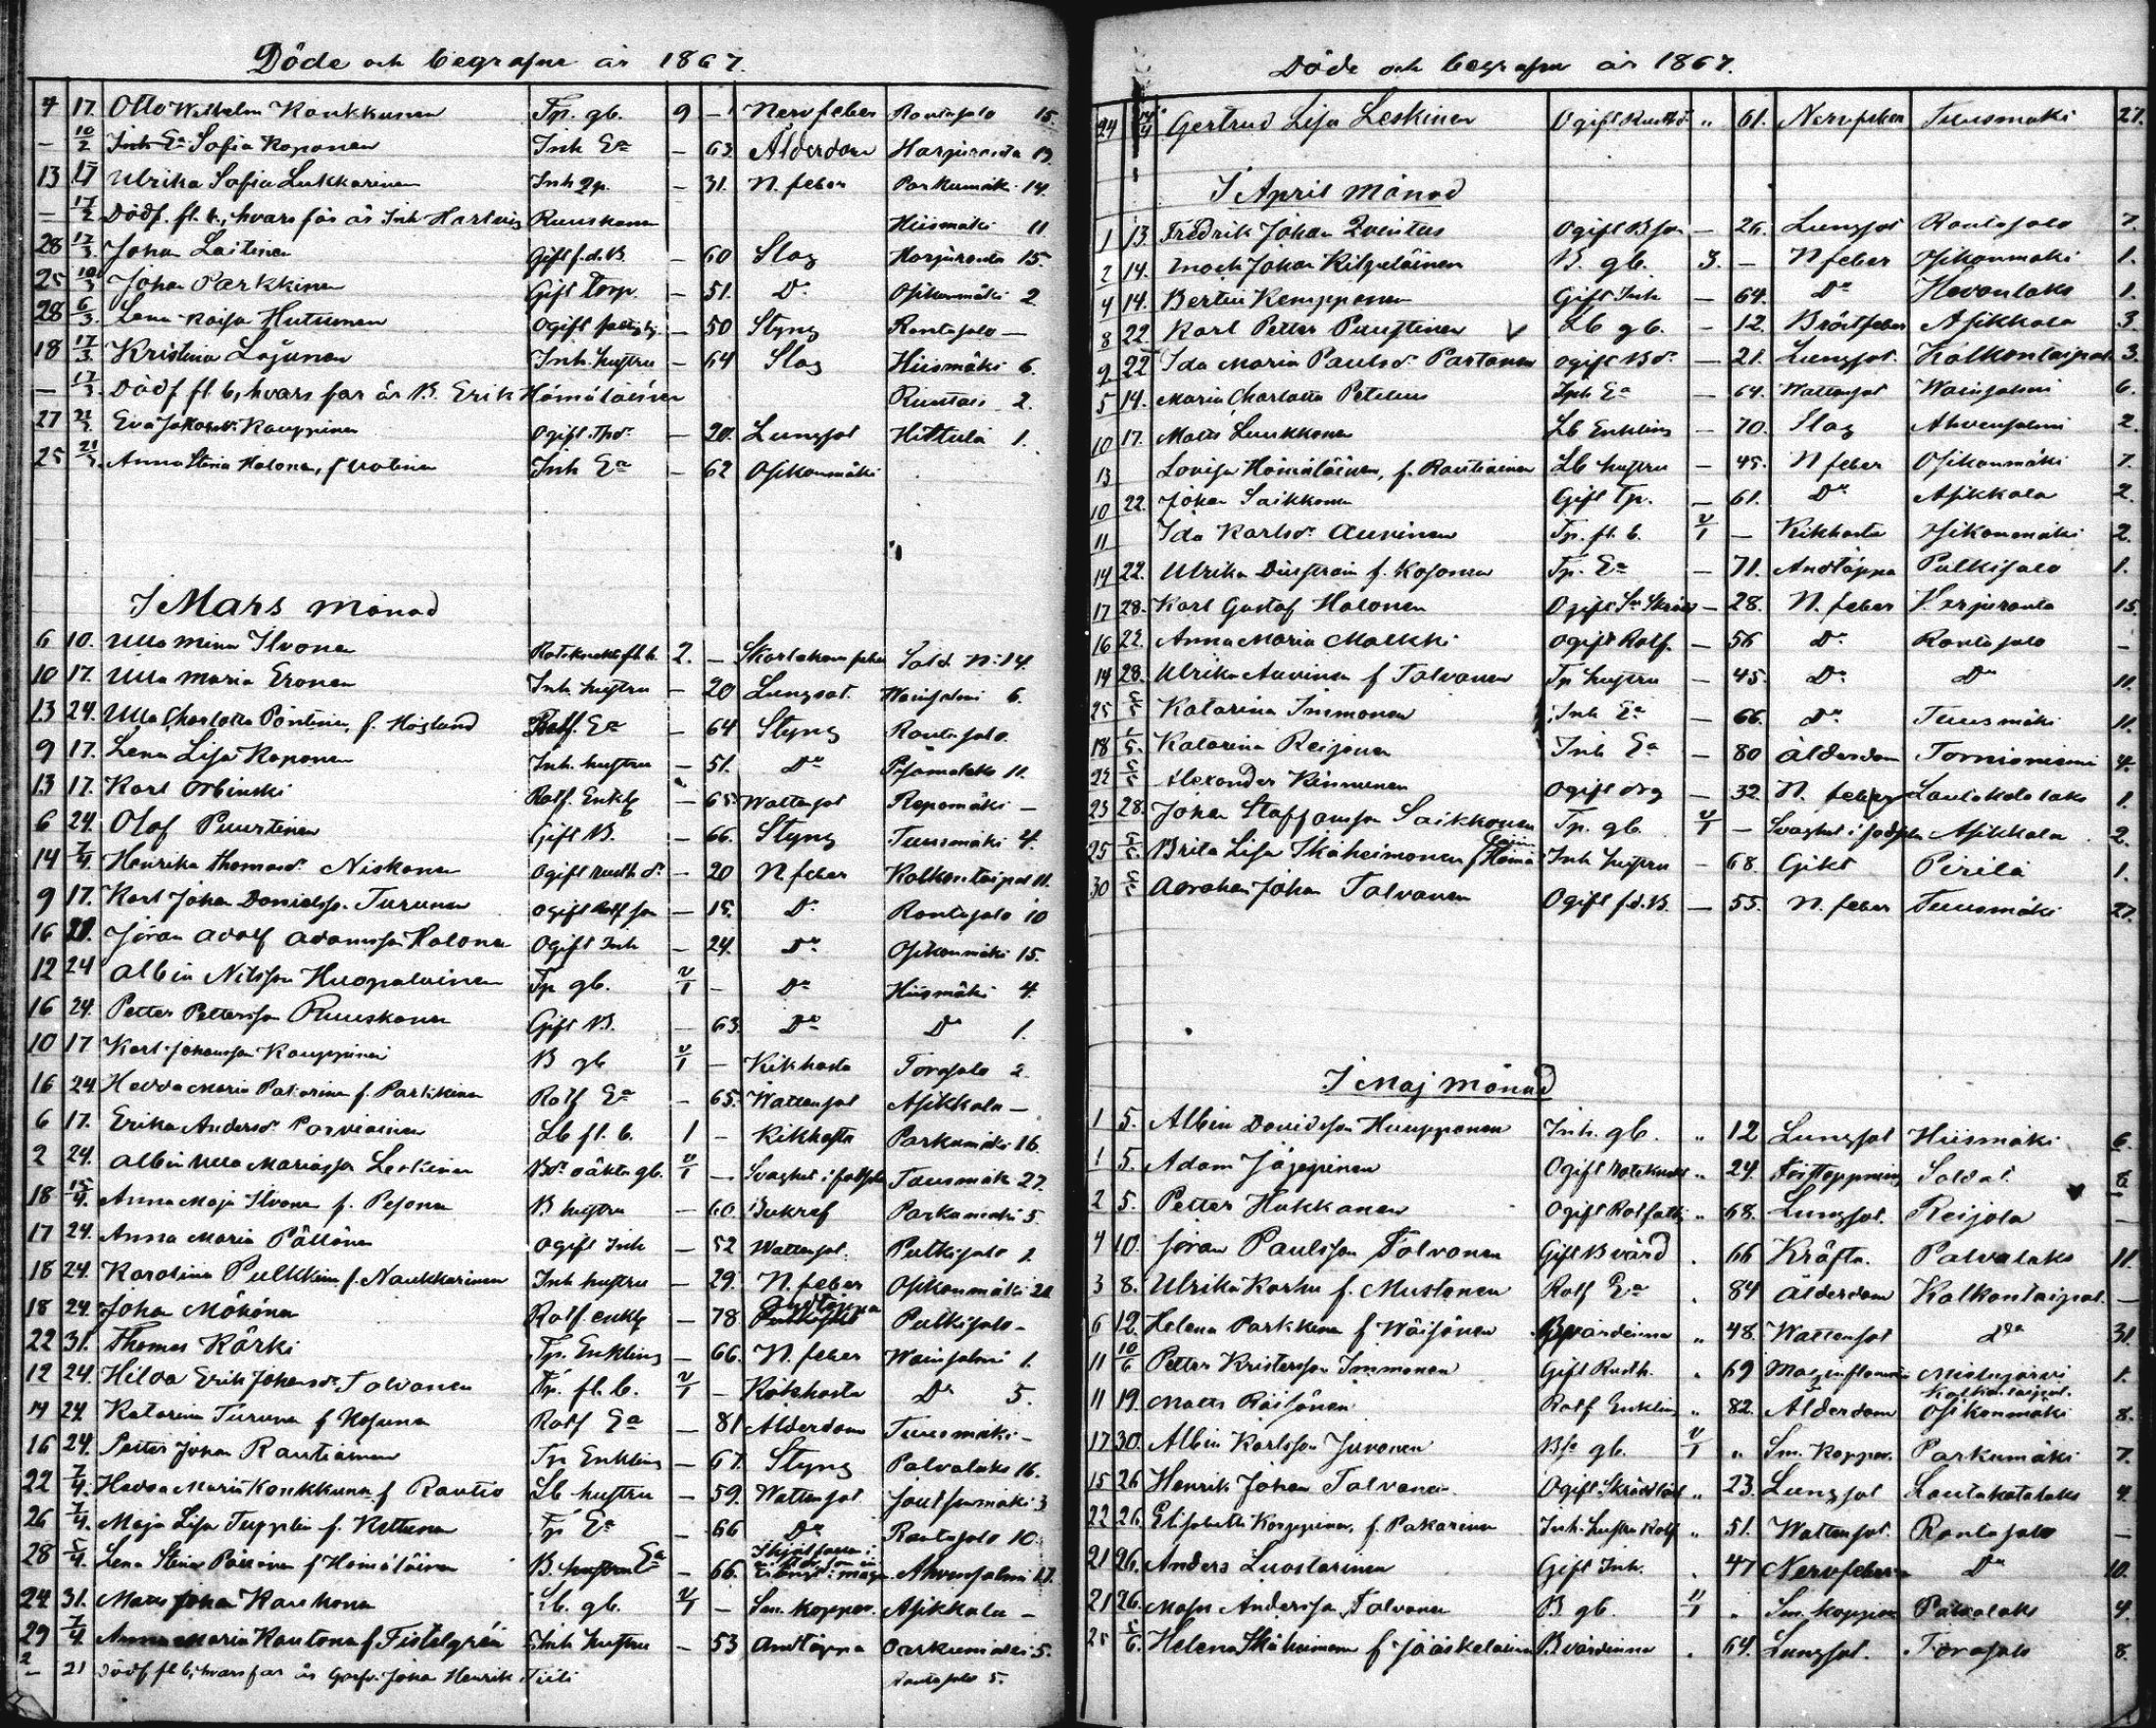 Döde och begrafne år 1867.
4 17. Otto Wilhelm Kaukkunen Tp. gb. 9 – Nervfeber Rantasalo 15.
– 10/2 Sofia Koponen Inh Ea – 63. Ålderdom Harjuranta 13.
13 17 Ulrika Sofia Lukkarinen Inh – 31. N. feber Parkumäki 14.
– 17/2 Dödf. fl. b., hvars far är Inh Hartvig Ruuskanen Hiismäki 11
28 17/3 Johan Laitinen Gift f.d. B. – 60 Slag Harjuranta 15.
25 10/3 Johan Parkkinen Gift Torp. – 51. Do Osikonmäki 2
28 6/3. Lena Kaisa Hutunen Ogift – 50 Styng Rantasalo –
18 17/3. Kristina Lajunen Inh. hustru – 64 Slag Hiismäki 6.
– 17/3. Dödf fl b, hvars far är B. Erik Hämäläinen 2.
27 Eva Jakobsdr Kauppinen Ogift – 20. Lungsot Hittula 1.
25 21/3 Anna Stina Halonen, f Inh Ea – 62 Osikonmäki
I Mars månad
6 10. Ulla Mina Ilvonen 2. – Sold. No 14.
10 17. Ulla Maria Eronen Inh hustru – 20 Lungsot. Wainsalmi 6.
13 24. Ulla Charlotta Pöntinen, f. Höglund Rotf. Ea – 64 Styng Rantasalo
9 17. Lena Lisa Koponen Inh. hustru – 51. Do 11.
13 17. Karl Orbinski Rotf. Enkl – 65 Wattensot Repomäki –
6 24. Olof Puustinen Gift B. – 66. Styng Tuusmäki 4.
14 7/4. Henrika Thomasdr Niskanen Ogift – 20 N. feber Kolkontaipal 11.
9 17. Karl Johan Danielss. Turunen Ogift – 15. Do Rantasalo 10
16 Jöran Adolf Adamsson Halonen Ogift Inh – 24. Do Osikonmäki 15.
12 24 Albin Nilsson Huopalainen Tp gb. – Do Hiismäki 4.
16 24. Petter Pettersson Ruuskanen Gift B. – 63. Do Do 1.
10 17 Karl Johansson Kauppinen B gb – Kikhosta Torasalo 2.
16 24. Hedda Maria Pakarinen f. Parkkinen Rotf Ea – 65. Wattensot Asikkala –
6 17. Erika Andersdr Parviainen Lb fl. b. 1 – Kikhosta Parkumäki 16.
2 24. Albin Ulla Mariasson Leskinen gb. – Tuusmäki 27.
18 15/4. Anna Maja Ilvonen f. Pesonen B hustru – 60. Parkumäki 5.
17 24. Anna Maria Pällönen Ogift Inh – 52 Wattensot. Pulkisalo 1.
18 24. Karolina Pulkkinen f. Naukkarinen Inh hustru – 29. N. feber Osikonmäki
18 24. Johan Mököinen Rotf. enkl – 78. Andtäppa Pulkisalo –
22 31. Thomas Kärki Tp. Enkling – 66. N. feber Wainsalmi 1.
12 24. Hilda Erik Johansdr. Talvanen Tp. fl. b. – Kikhosta Do 5.
14 24. Katarina Turunen f Kosunen Rotf Ea – 81 Ålderdom Tuusmäki –
16 24. Petter Johan Rautiainen Tp Enkling – 67. Styng Palvalaks 16.
22 7/4. Hedda Maria Konkkunen f Rautio Lb hustru – 59. Wattensot Joutsenmäki 3
26 7/4. Maja Lisa Tupplin f. Kettunen Tp Ea – 66 Do Rantasalo 10.
28 5/4. Lena Stina f Hämäläinen B. Ea – 66. Ahvensalmi 17.
24 31. Matts Johan Karhonen Lb. gb. – Sm. koppor. Asikkala –
29 7/4. Anna Maria Rautonen f Fistelgrén Inh hustru – 53 Andtäppa Parkumäki 5.
2 – 21 Dödf fl b, hvars far är Johan Henrik Tiili Rantasalo 5.
Döde och begrafne år 1867.
24 14/4 Gertrud Lisa Leskinen Ogift " 61. Nervfeber Tuusmäki 27.
I April Månad
1 13. Fredrik Johan Qventus Ogift B son – 26. Lungsot Rantasalo 7.
2 14. Enoch Johan Kilpeläinen B. gb. 3. – N feber Osikonmäki 1.
4 14. Bertin Kempponen Gift Inh – 64. Do Hevonlaks 1.
8 22. Karl Petter Puustinen Lb gb. – 12. Bröstfeber Asikkala 3
9 22 Ida Maria Paulsdr Partanen Ogift Bdr – 21. Lungsot. Kolkontaipal 3.
5 14. Maria Charlotta Petelius Inh Ea – 64. Wattensot Wainsalmi 6.
10 17. Matts Luukkonen Lb Enkling – 70. Slag Ahvensalmi 2.
13 Lovisa Hämäläinen, f. Rautiainen Lb hustru – 45. N feber Osikonmäki 7.
10 22. Johan Saikkonen Gift Tp. – 61. Do Asikkala 2.
11 Ida Karlsdr Auvinen Tp. fl. b. – Kikhosta Osikonmäki 2.
14 22. Ulrika f. Kosonen Tp. Ea – 71. Andtäppa Pulkisalo 1.
17 28. Karl Gustaf Halonen Ogift – 28. N. feber Harjuranta 15.
16 22. Anna Maria Malkki Ogift Rotf. – 56 Do Rantasalo –
14 28. Ulrika Auvinen f Talvanen Tp hustru – 45. Do Do 11.
25 5/5 Katarina Immonen Inh Ea – 66. Do Tuusmäki 11.
18 5. Katarina Reijonen Inh Ea – 80 Ålderdom Tornioniemi 4.
22 5/5 Alexander Kinnunen Ogift drg – 32. N. feber Lautakotalaks 1.
23 28. Johan Staffansson Saikkonen Tp. gb. – Asikkala 2.
25 5/5. Brita Lisa Ikäheimonen f Inh hustru – 68. Gikt Pirilä 1.
30 5/5 Abraham Johan Talvanen Ogift f.d. B. – 55. N. feber Tuusmäki 27.
I Maj månad
1 5. Albin Davidsson Huupponen Inh. gb. " 12 Lungsot Hiismäki 6.
1 5. Adam Jäppinen Ogift " 24. Soldat 6
2 5. Petter Hukkanen Ogift " 68. Lungsot. Reijola –
4 10. Jöran Paulsson Talvanen Gift B värd . 66 Kräfta. Palvalaks 11.
3 8. Ulrika Karhu f. Mustonen Rotf Ea . 84 Ålderdom Kolkontaipal. –
6 12. Helena Parkkinen f Wäisänen värdinna " 48. Wattensot Do 31.
11 10/6 Petter Kristersson Immonen Gift . 69 1.
11 19. Matts Räisänen Rotf Enkling " 82. Ålderdom Kolkontaipal. Osikonmäki 8.
17 30. Albin Karlsson Juvonen gb. " Sm. koppor. Parkumäki 7.
15 26 Henrik Johan Talvanen Ogift " 23. Lungsot Lautakotalaks 4.
22 26. Elisabeth Koppinen, f. Pakarinen Inh. hustru Rotf " 51. Wattensot. Rantasalo –
21 26. Anders Luostarinen Gift Inh. . 47 Nervfeber Do 10.
21 26. Andersson Talvanen B gb. " Sm. koppor Palvalaks 4.
25 5/6. Helena Ikäheimonen f Jääskeläinen B värdinna . 64. Lungsot. Torasalo 8.